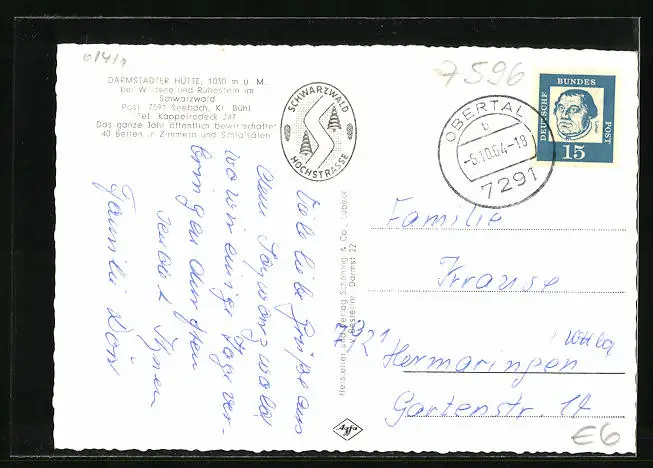 0/4/1
DARMSTÄDTER HÜTTE, 1030 m ü. M.
bei Wildsee und Ruhestein im
Schwarzwald
Post 7591 Seebach, Kr. Bühl
Tel. Kappelrodeck 247
Das ganze Jahr öffentlich bewirtschaftet
40 Betten in Zimmern und Schlafsälen
SCHWARZWALD
HOCHSTRASSE
7596
OBERTAL
b
-5.10.64-18
7291
DEUTSCHE
BUNDES
POST
15
Viele liebe Grüße aus
dem Schwarzwald
wo wir einige Tage ver-
bringen durften
sendet Ihnen
Familie Dörr
Hersteller und Verlag Schöning & Co., Lübeck
Bestellnr. Darmst 22
Familie
Krause
7921
Hermaringen
Gartenstr. 17
€6